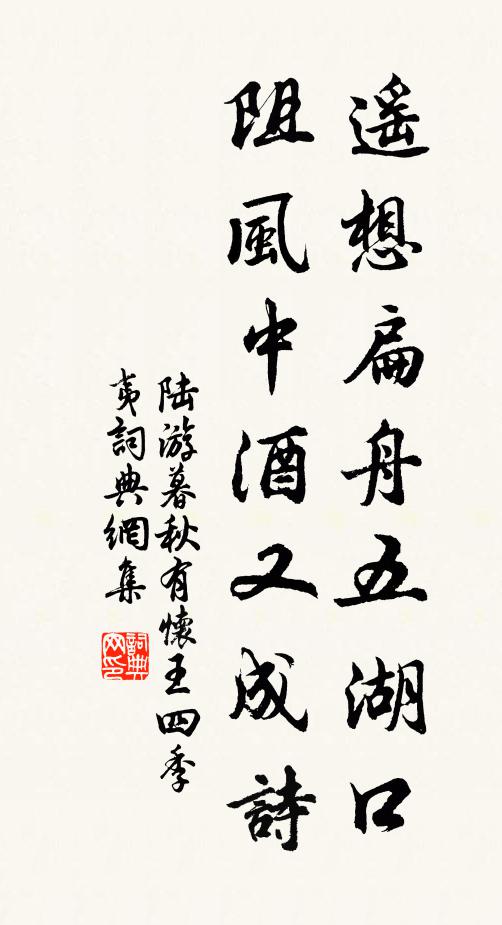 遥想扁舟五湖口
阻風中酒又成詩
陸游暮秋有懷王四季
夷詞典網集
詞典网印